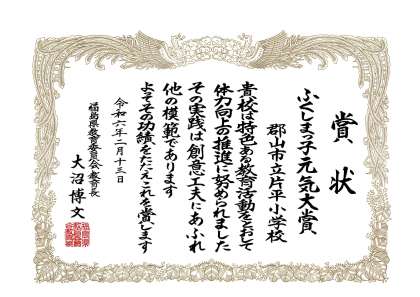 賞状
ふくしまっ子元気大賞
郡山市立片平小学校
貴校は特色ある教育活動をとおして
体力向上の推進に努められました
その実践は創意工夫にあふれ
他の模範であります
よってその功績をたたえこれを賞します
令和六年二月十三日
福島県教育委員会教育長
大沼博文